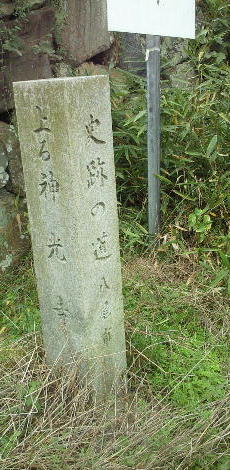 史跡の道 八尾市
上る神光寺